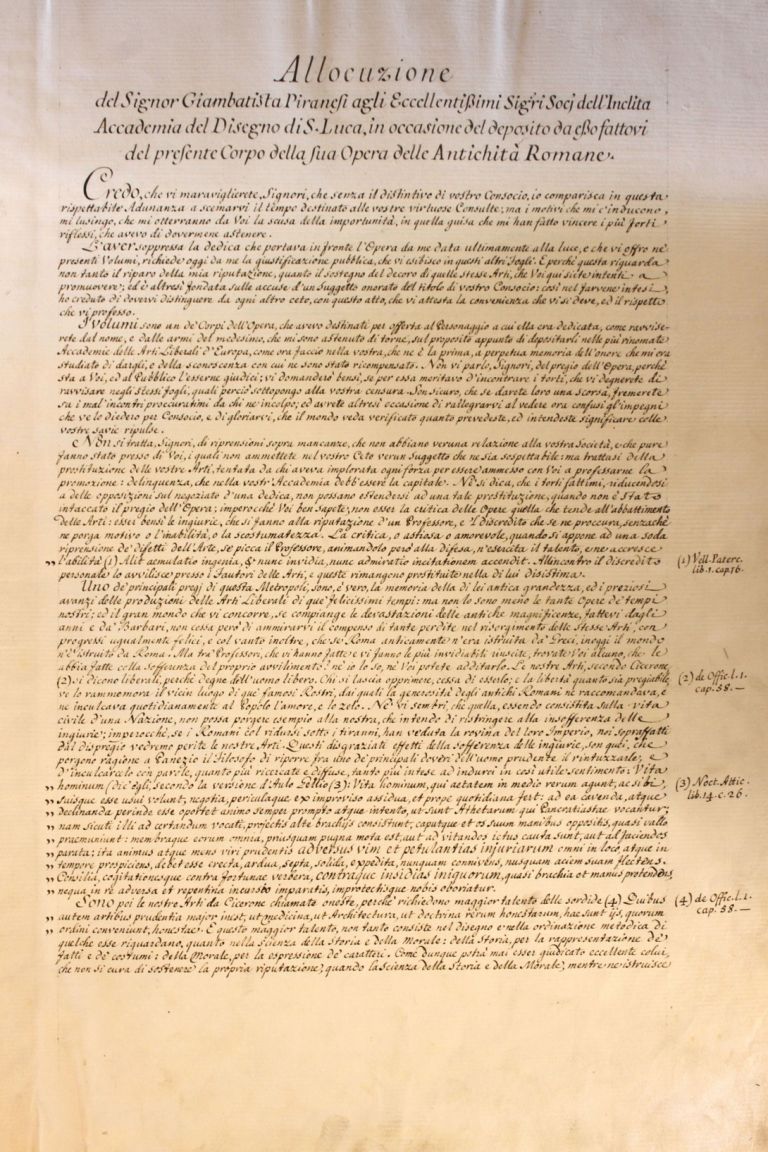 Allocuzione
del Signor Giambatista Piranesi agli Eccellentissimi Sig.ri Socj dell'Inclita
Accademia del Disegno di S. Luca, in occasione del deposito da esso fattovi
del presente Corpo della sua Opera delle Antichità Romane.
Credo, che vi maraviglierete, Signori, che senza il distintivo di vostro Consocio, io comparisca in questa
rispettabile Adunanza a scemarvi il tempo destinato alle vostre virtuose Consulte; ma i motivi che mi c'inducono,
mi lusingo, che mi otterranno da Voi la scusa della importunità, in quella guisa che mi han fatto vincere i più forti
riflessi, che avevo di dovermene astenere.
L'aver soppressa la dedica che portava in fronte l'Opera da me data ultimamente alla luce, e che vi offro ne'
presenti Volumi, richiede oggi da me la giustificazione pubblica, che vi esibisco in questi altri fogli. E perchè questa riguarda
non tanto il riparo della mia riputazione, quanto il sostegno del decoro di quelle stesse Arti, che Voi qui siete intenti a
promuovere; ed è altresì fondata sulle accuse d'un suggetto onorato del titolo di vostro Consocio: così nel farvene intesi,
ho creduto di dovervi distinguere da ogni altro ceto, con questo atto, che vi attesta la convenienza che vi si deve, ed il rispetto
che vi professo.
I volumi sono un de' Corpi dell'Opera, che avevo destinati per offerta al Personaggio a cui ella era dedicata, come ravvise-
rete dal nome, e dalle armi del medesimo, che mi sono astenuto di torne, sul proposito appunto di depositarli nelle più rinomate
Accademie delle Arti Liberali d'Europa, come ora faccio nella vostra, che ne è la prima, a perpetua memoria dell'onore che mi era
studiato di dargli, e della sconoscenza con cui ne sono stato ricompensato. Non vi parlo, Signori, del pregio dell'Opera, perchè
sta a Voi, ed al Pubblico l'esserne giudici; vi domanderò bensì, se per essa meritavo d'incontrare i torti, che vi degnerete di
ravvisare negli stessi fogli, quali perciò sottopongo alla vostra censura. Son sicuro, che se darete loro una scorsa, fremerete
su i mal'incontri procuratimi da chi ne incolpo; ed avrete altresì occasione di rallegrarvi al vedere ora confusi gl'impegni
che ve lo diedero per Consocio, e di gloriarvi, che il mondo veda verificato quanto prevedeste, ed intendeste significare colle
vostre savie ripulse.
Non si tratta, Signori, di riprensioni sopra mancanze, che non abbiano veruna relazione alla vostra Società, e che pure
fanno stato presso di Voi, i quali non ammettete nel vostro Ceto verun Suggetto che ne sia sospettabile: ma trattasi della
prostituzione delle vostre Arti, tentata da chi aveva implorata ogni forza per essere ammesso con Voi a professarne la
promozione: delinquenza, che nella vostr'Accademia debb'essere la capitale. Nè si dica, che i torti fattimi, riducendosi
a delle opposizioni sul negoziato d'una dedica, non possano estendersi ad una tale prostituzione, quando non è stato
intaccato il pregio dell'Opera; imperocchè Voi ben sapete, non esser la critica delle Opere quella che tende all'abbattimento
delle Arti: esser bensì le ingiurie, che si fanno alla riputazione d'un Professore, e 'l discredito che se ne proccura, senzachè
ne porga motivo o l'inabilità, o la scostumatezza. La critica, o astiosa o amorevole, quando si appone ad una soda
riprensione de' difetti dell'Arte, se picca il Professore, animandolo però alla difesa, n'esercita il talento, e ne accresce
„ l'abilità (1) Alit aemulatio ingenia, & nunc invidia, nunc admiratio incitationem accendit. All'incontro il discredito
personale lo avvilisce presso i Fautori delle Arti, e queste rimangono prostituite nella di lui disistima.
(1) Vell. Paterc.
lib. 1. cap. 16.
Uno de' principali pregi di questa Metropoli, sono, è vero, la memoria della di lei antica grandezza, ed i preziosi
avanzi delle produzioni delle Arti Liberali di que' felicissimi tempi: ma non lo sono meno le tante Opere de' tempi
nostri; ed il gran mondo che vi concorre, se compiange le devastazioni delle antiche magnificenze, fattevi dagli
anni e da' Barbari, non cessa però di ammirarvi il compenso di tante perdite nel risorgimento delle stesse Arti, con
progressi ugualmente felici, e col vanto inoltre, che se Roma anticamente n'era istruita da' Greci, in oggi il mondo
n'è istruito da Roma. Ma tra' Professori, che vi hanno fatte e vi fanno le più invidiabili riuscite, trovate Voi alcuno, che le
abbia fatte colla sofferenza del proprio avvilimento? nè io lo so, nè Voi potete additarlo. Le nostre Arti, secondo Cicerone
(2) si dicono liberali, perchè degne dell'uomo libero. Chi si lascia opprimere, cessa di esserlo; e la libertà quanto sia pregiabile,
ve lo rammemora il vicin luogo di que' famosi Rostri, dai quali la generosità degli antichi Romani ne raccomandava, e
ne inculcava quotidianamente al Popolo l'amore, e lo zelo. Nè vi sembri, che quella, essendo consistita sulla vita
(2) de Offic. l. 1.
cap. 38. —
civile d'una Nazione, non possa porgere esempio alla nostra, che intendo di ristringere alla insofferenza delle
ingiurie; imperocchè, se i Romani col ridursi sotto i tiranni, han veduta la rovina del loro Imperio, noi sopraffatti
dal dispregio vedremo perite le nostre Arti. Questi disgraziati effetti della sofferenza delle ingiurie, son quli, che
porgono ragione a Panezio il Filosofo di riporre fra uno de' principali doveri dell'uomo prudente il rintuzzarle; e
d'inculcarcelo con parole, quanto più ricercate e diffuse, tanto più intese ad indurci in così utile sentimento: Vita
„ hominum (dic'egli, secondo la versione d'Aulo Gellio (3): Vita hominum, qui aetatem in medio rerum agunt, ac sibi,
„ suisque esse usui volunt, negotia, periculaque ex improviso assidua, et prope quotidiana fert: ad ea cavenda, atque
„ declinanda perinde esse oportet animo semper prompto atque intento, ut sunt Athletarum qui Pancratiastae vocantur;
„ nam sicuti illi ad certandum vocati, projectis alte brachijs consistunt, caputque et os suum manibus oppositis, quasi vallo
„ praemuniunt: membraque eorum omnia, priusquam pugna mota est, aut ad vitandos ictus cauta sunt, aut ad faciendos
„ parata; ita animus atque mens viri prudentis adversus vim et petulantias injuriarum omni in loco atque in
„ tempore prospiciens, debet esse erecta, ardua, septa, solida, expedita, nunquam connivens, nusquam aciem suam flectens.
„ Consilia, cogitationesque contra fortunae verbera, contraque insidias iniquorum, quasi brachia et manus protendens,
„ nequa in re adversa et repentina incursio imparatis, improtectisque nobis oboriatur.
(3) Noct. Attic.
lib. 14. c. 26.
Sono poi le nostre Arti da Cicerone chiamate oneste, perchè richiedono maggior talento delle sordide (4) Quibus
„ autem artibus prudentia major inest, ut medicina, ut Architectura, ut doctrina rerum honestarum, hae sunt ijs, quorum
„ ordini conveniunt, honestae. E questo maggior talento, non tanto consiste nel disegno e nella ordinazione metodica di
quelche esse riguardano, quanto nella scienza della Storia e della Morale: della Storia, per la rappresentazione de'
fatti e de' costumi: della Morale, per la espressione de' caratteri. Come dunque potrà mai esser giudicato eccellente colui,
che non si cura di sostenere la propria riputazione; quando la scienza della Storia e della Morale, mentre ne istruisce
(4) de Offic. l. 1.
cap. 38. —